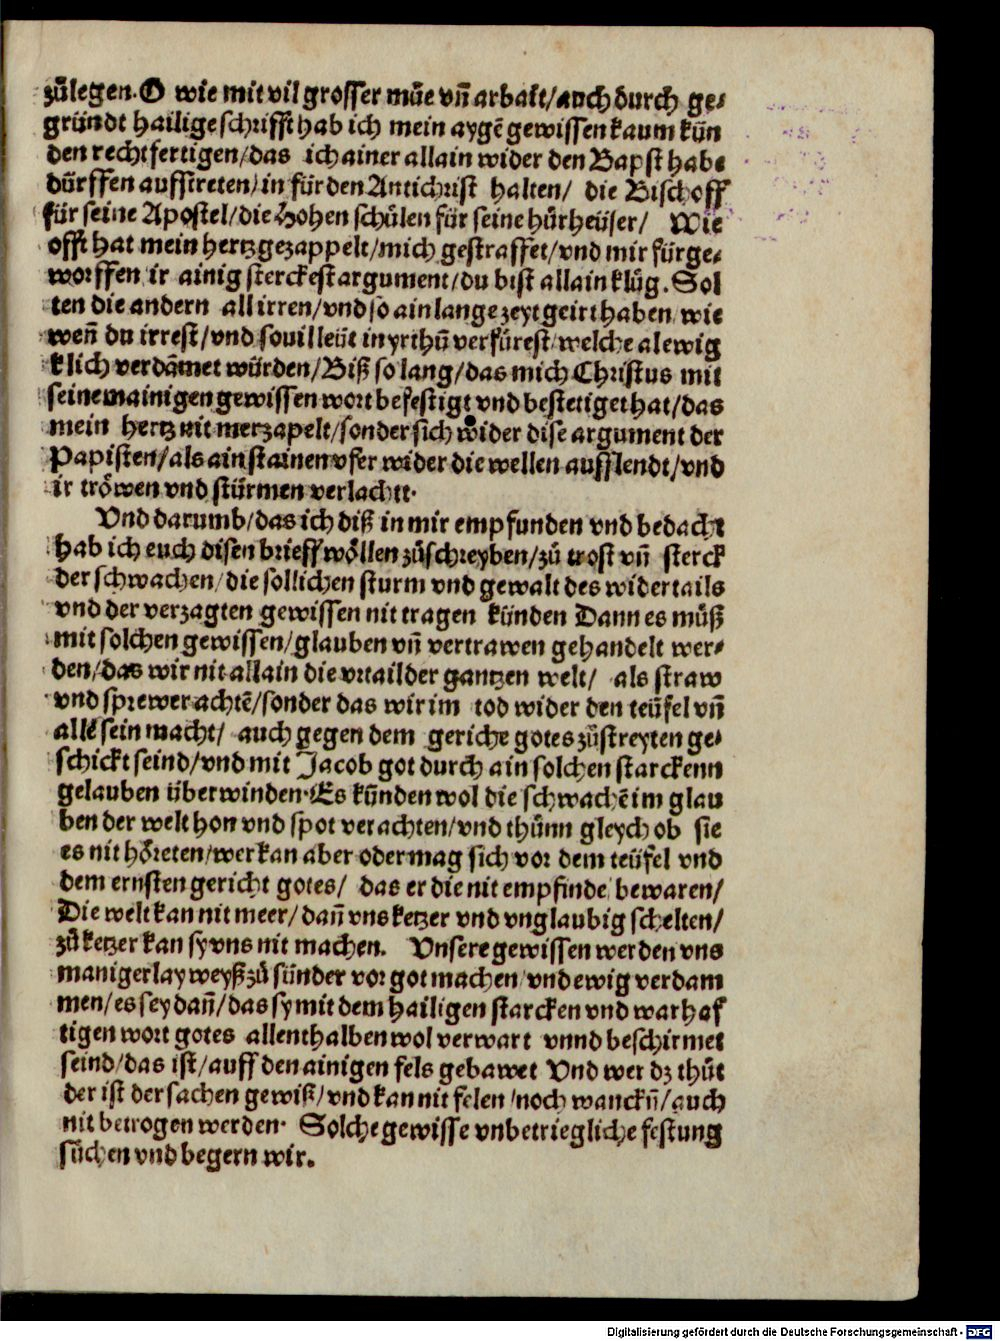 zůlegen. O wie mit vil grosser můe vñ arbait/auch durch ge⸗
gründt hailige schrifft hab ich mein aygẽ gewissen kaum kün
den rechtfertigen/das ich ainer allain wider den Bapst habe
dürffen aufftreten/in für den Antichrist halten/ die Bischoff
für seine Apostel/die Hohen schůlen für seine hůrheüser/ Wie
offt hat mein hertz gezappelt/mich gestraffet/vnd mir fürge⸗
worffen ir ainig sterckest argument/du bist allain klůg. Sol
ten die andern all irren/vnd so ain lange zeyt geirt haben/wie
weñ du irrest/vnd souil leüt in yrthũ verfürest/welche al ewig
klich verdãmet würden/Biß so lang/das mich Christus mit
seinem ainigen gewissen wort befestigt vnd bestetiget hat/das
mein hertz nit mer zapelt/sonder sich wider dise argument der
Papisten/als ain stainen vfer wider die wellen aufflendt/vnd
ir tröwen vnd stürmen verlacht.
Vnd darumb/das ich diß in mir empfunden vnd bedacht
hab ich euch disen brieff wöllen zůschreyben/zů trost vñ sterck
der schwachen/die sollichen sturm vnd gewalt des widertails
vnd der verzagten gewissen nit tragen künden Dann es můß
mit solchen gewissen/glauben vñ vertrawen gehandelt wer⸗
den/das wir nit allain die vrtail der gantzen welt/ als straw
vnd sprewer achtẽ/sonder das wir im tod wider den teüfel vñ
alle sein macht/ auch gegen dem gerichc gotes zůstreyten ge⸗
schickt seind/vnd mit Jacob got durch ain solchen starckenn
gelauben überwinden. Es künden wol die schwachẽ im glau
ben der welt hon vnd spot verachten/vnd thůnn gleych ob sie
es nit höreten/wer kan aber oder mag sich vor dem teüfel vnd
dem ernsten gericht gotes/ das er die nit empfinde bewaren/
Die welt kan nit meer/dañ vns ketzer vnd vnglaubig schelten/
zů ketzer kan sy vns nit machen. Vnsere gewissen werden vns
manigerlay weyß zů sünder vor got machen/vnd ewig verdam
men/es sey dañ/das sy mit dem hailigen starcken vnd warhaf
tigen wort gotes allenthalben wol verwart vnnd beschirmet
seind/das ist/auff den ainigen fels gebawet Vnd wer dz thůt
der ist der sachen gewiß/vnd kan nit felen/noch wanckñ/auch
nit betrogen werden. Solche gewisse vnbetriegliche festung
sůchen vnd begern wir.
Digitalisierung gefördert durch die Deutsche Forschungsgemeinschaft - DFG